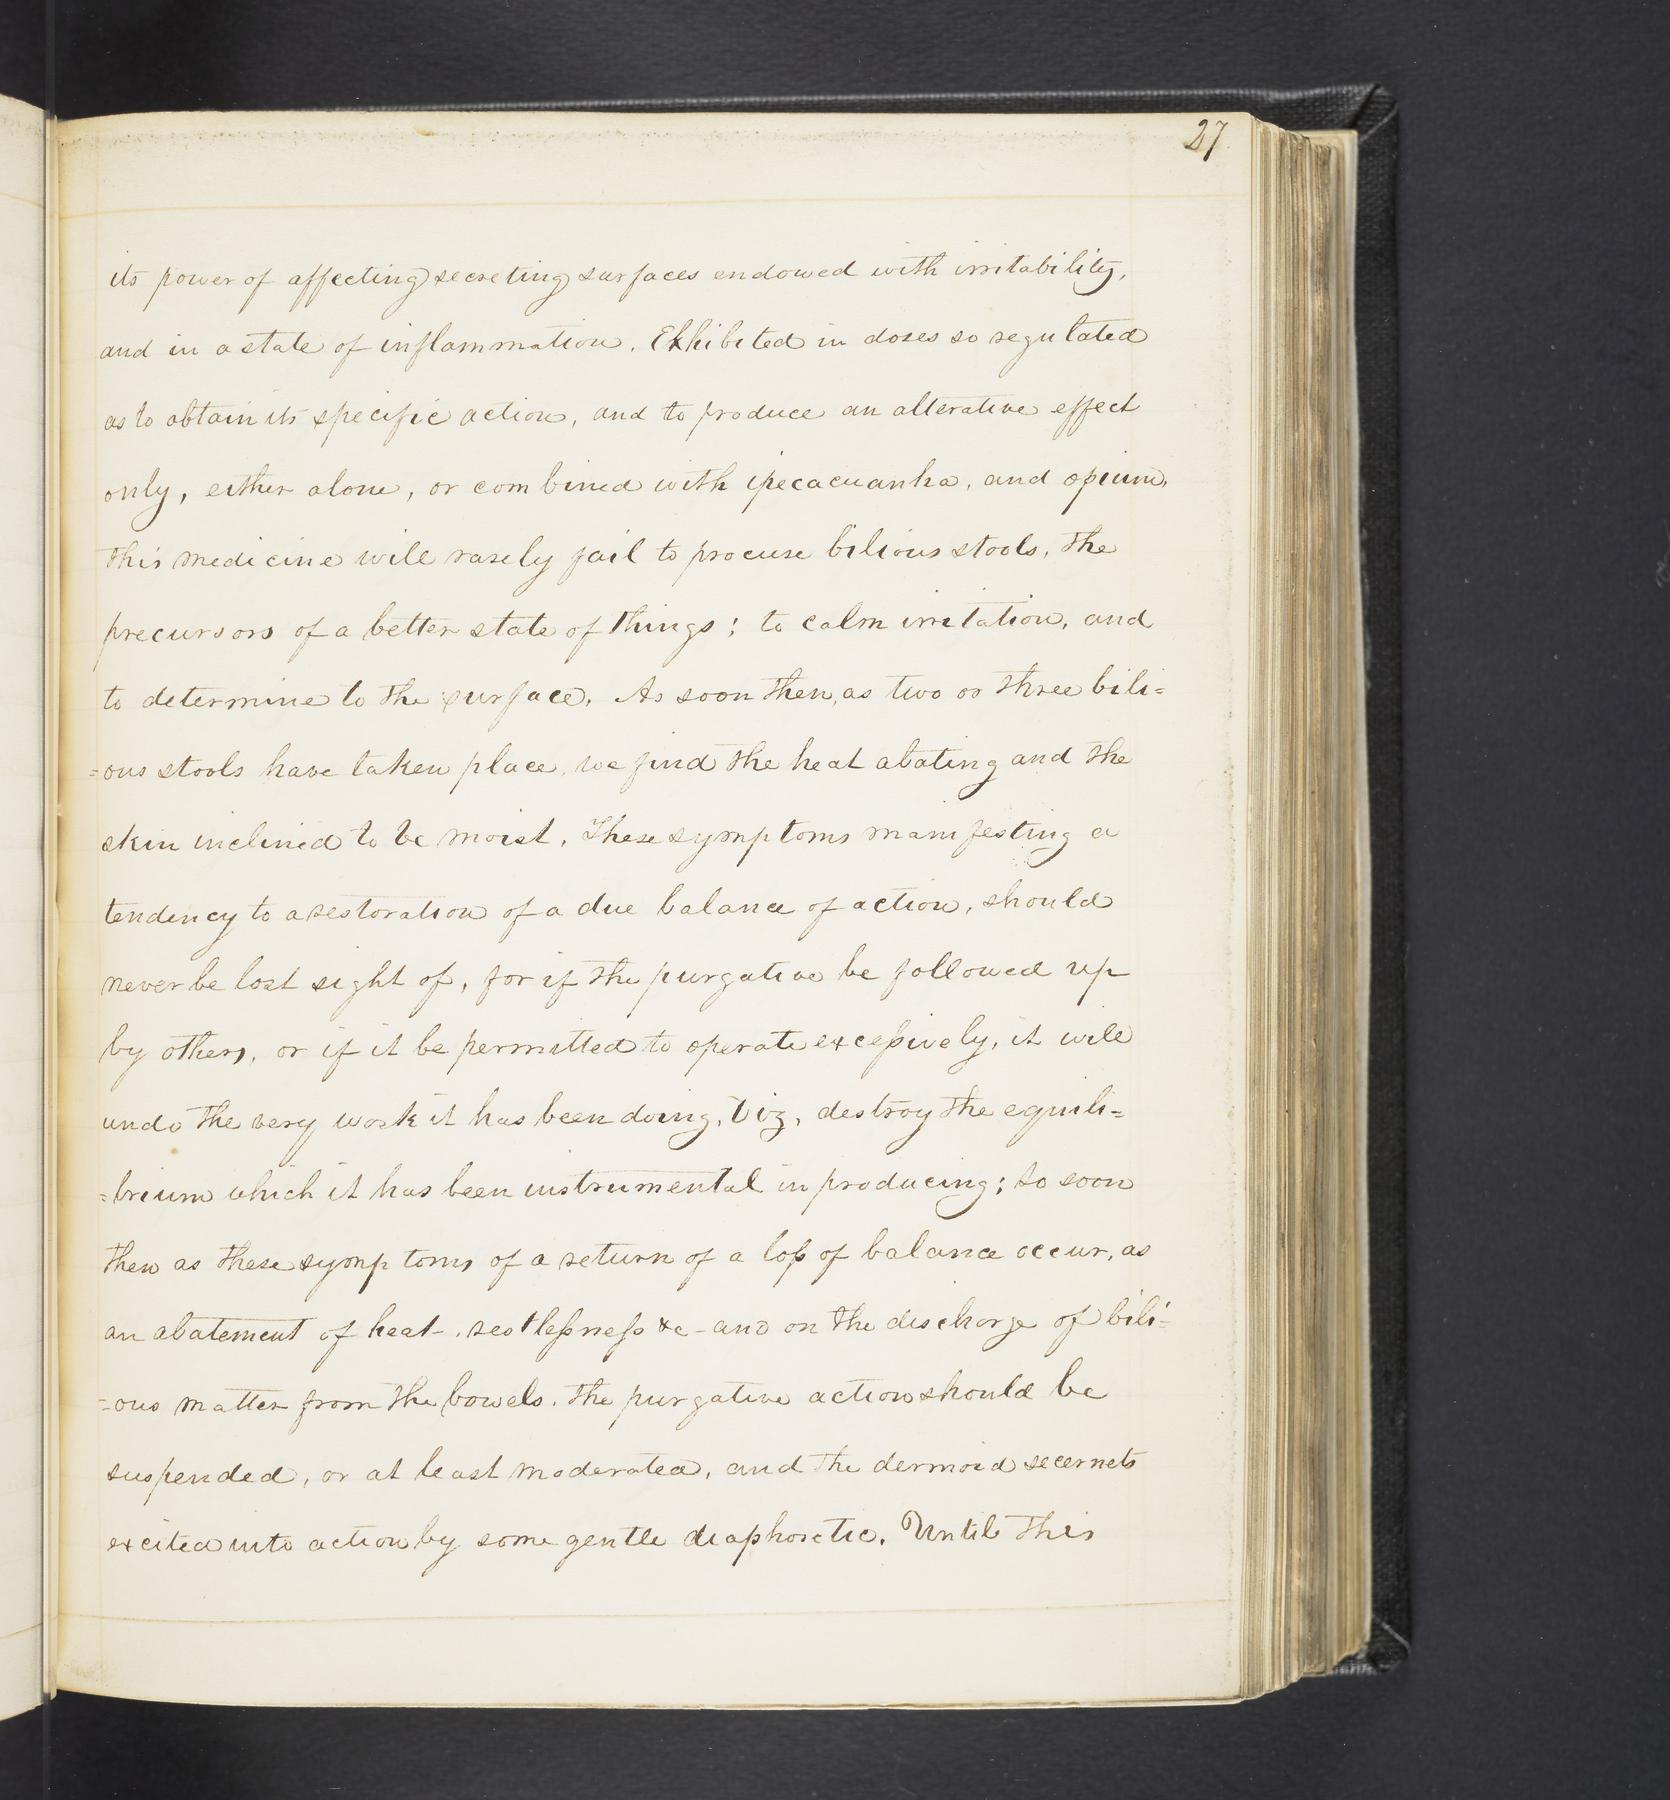 27
its power of affecting secreting surfaces endowed with irritability,
and in a state of inflammation. Exhibited in doses so regulated
as to obtain its specific action, and to produce an alterative effect
only, either alone, or combined with ipecacuanha, and opium,
this medicine will rarely fail to procure bilious stools, the
precursors of a better state of things; to calm irritation, and
to determine to the surface. As soon then, as two or three bili=
=ous stools have taken place, we find the heat abating and the
skin inclined to be moist. These symptoms manifesting a
tendency to a restoration of a due balance of action, should
never be lost sight of, for if the purgative be followed up
by others, or if it be permitted to operate excessively, it will
undo the very work it has been doing, viz, destroy the equili=
=brium which it has been instrumental in producing; so soon
then as these symptoms of a return of a loss of balance occur, as
an abatement of heat-, restlessness &c - and on the discharge of bili=
=ous matter from the bowels. The purgative action should be
suspended, or at least moderated, and the dermoid secernets
excited into action by some gentle diaphoretic. Until this